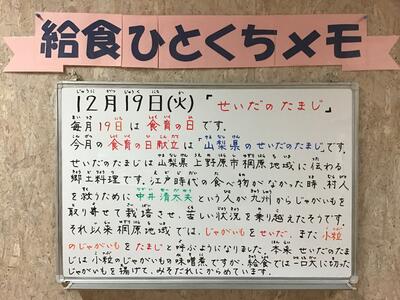 給食ひとくちメモ
12月19日(火) 「せいだのたまじ」
毎月19日は食育の日です。
今月の食育の日献立は「山梨県のせいだのたまじ」です。
せいだのたまじは山梨県上野原市棡原地域に伝わる
郷土料理です。江戸時代の食べ物がなかった時、村人
を救うために中井清太夫という人が九州からじゃがいもを
取り寄せて栽培させ、苦しい状況を乗り越えたそうです。
それ以来棡原地域では、じゃがいもをせいだ、また小粒
のじゃがいもをたまじと呼ぶようになりました。本来せいだのたま
じは小粒のじゃがいもの味噌煮ですが、給食では一口大に切った
じゃがいもを揚げて、みそだれにからめています。